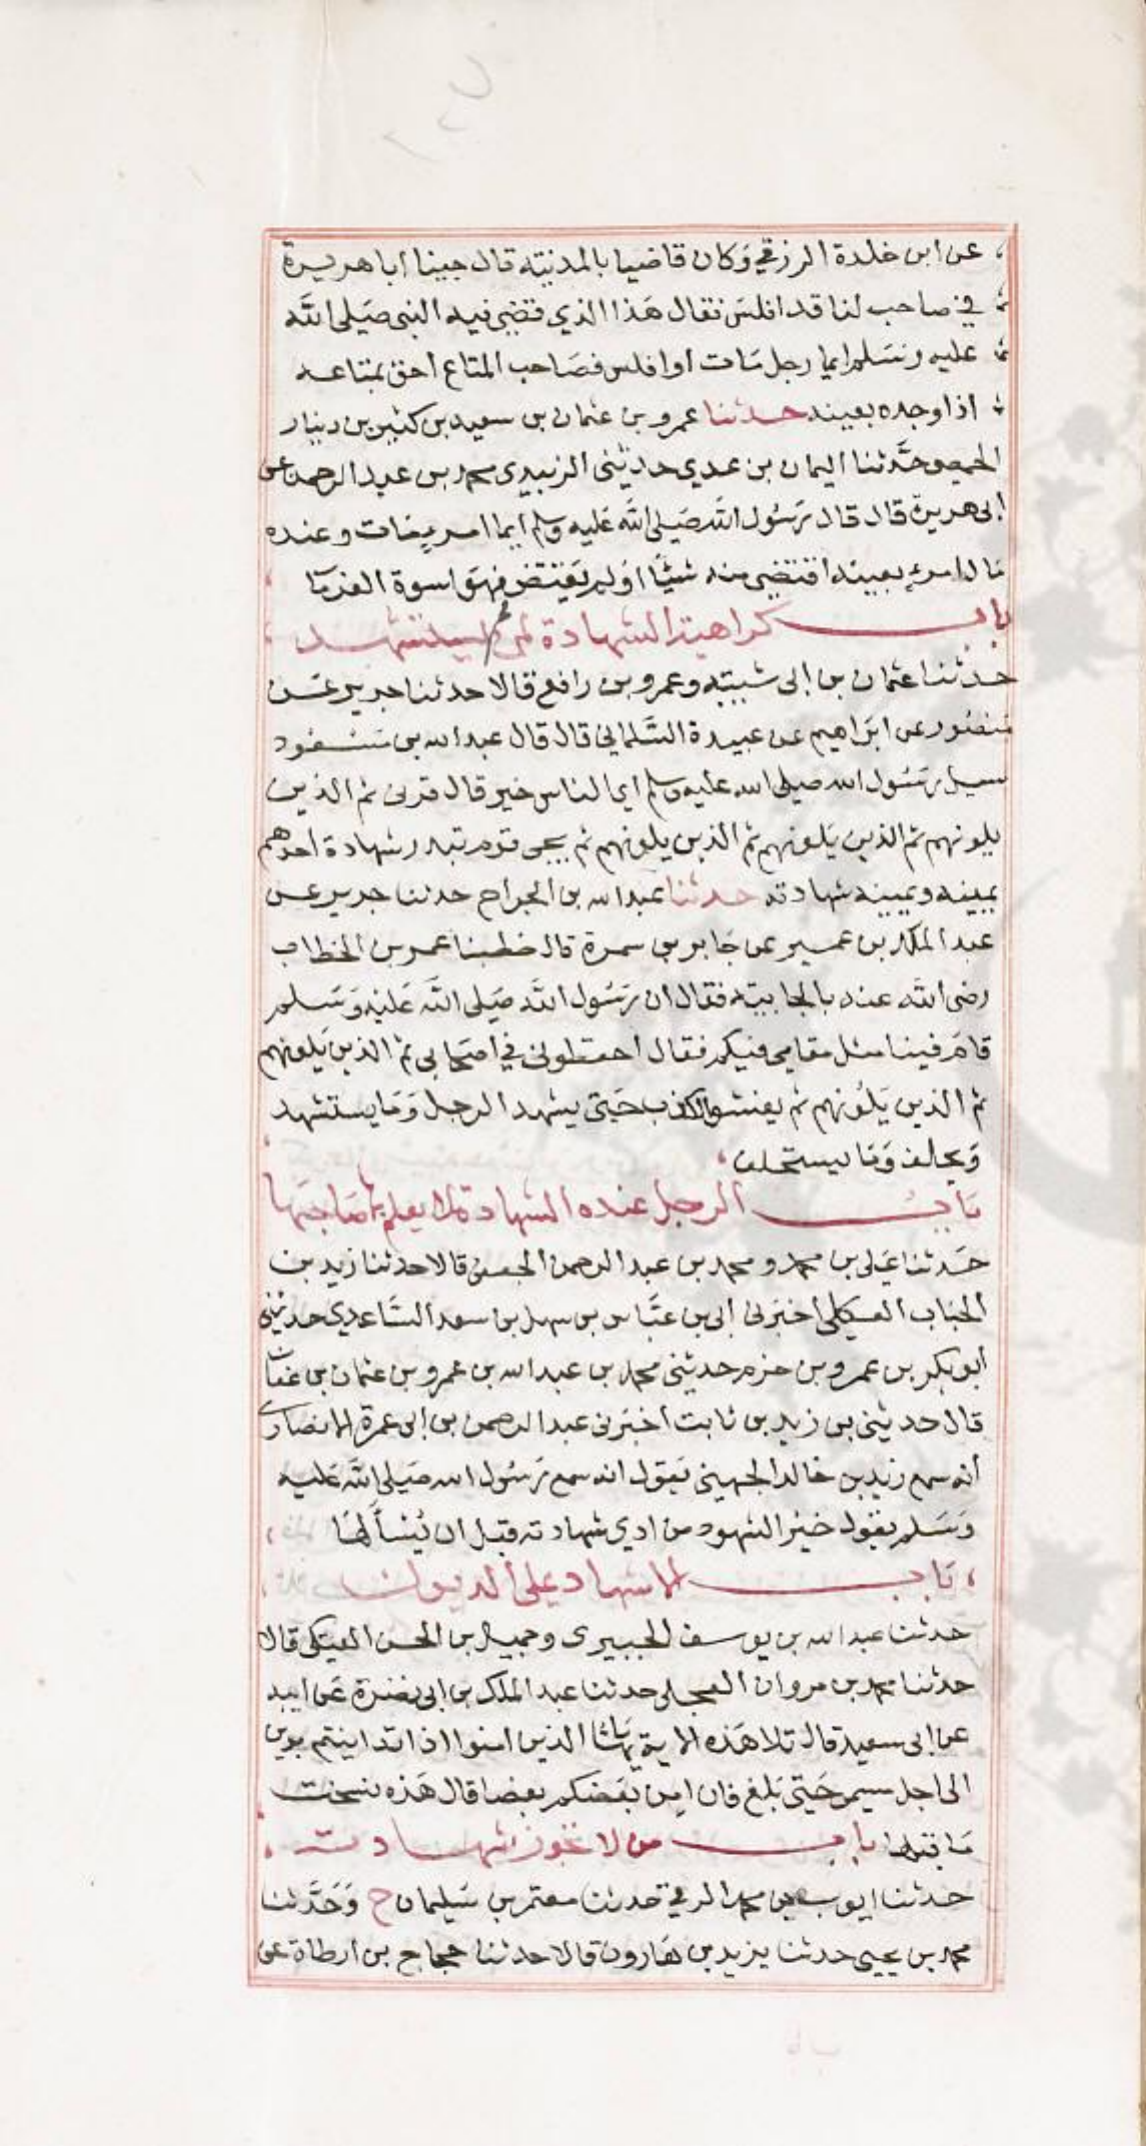 عن ابن خلدة الزرقي وكان قاضيا بالمدينة قال جينا ابا هريرة
في صاحب لنا قد افلس فقال هذا الذي قضى فيه النبي صلى الله
عليه وسلم ايما رجل مات او افلس فصاحب المتاع احق بمتاعه
اذا وجده بعينه حدثنا عمرو بن عثمان بن سعيد بن كثير بن دينار
الحمصي حدثنا اليمان بن عدي حدثني الزبيدي محمد بن عبد الرحمن عن
ابي هريرة قال قال رسول الله صلى الله عليه وسلم ايما امرء مات وعنده
مال امرء بعينه اقتضى منه شيئا او لم يقتض فهو اسوة الغرما
باب كراهية الشهادة لمن لم يستشهد
حدثنا عثمان بن ابي شيبة وعمرو بن رافع قالا حدثنا جرير عن
منصور عن ابراهيم عن عبيدة السلماني قال قال عبد الله بن مسعود
سيل رسول الله صلى الله عليه وسلم اي الناس خير قال قرني ثم الذين
يلونهم ثم الذين يلونهم ثم الذين يلونهم ثم يجى قوم تبدر شهادة احدهم
يمينه ويمينه شهادته حدثنا عبد الله بن الجراح حدثنا جرير عن
عبد الملك بن عمير عن جابر بن سمرة قال خطبنا عمر بن الخطاب
رضى الله عنه بالجابية فقال ان رسول الله صلى الله عليه وسلم
قام فينا مثل مقامي فيكم فقال احفظوني في اصحابي ثم الذين يلونهم
ثم الذين يلونهم ثم يفشو الكذب حتى يشهد الرجل وما يستشهد
ويحلف وما يستحلف
باب الرجل عنده الشهادة لا يعلم بها صاحبها
حدثنا علي بن محمد ومحمد بن عبد الرحمن الجعفي قالا حدثنا زيد بن
الحباب العكلي اخبرني ابي بن عباس بن سهل بن سعد الساعدي حدثني
ابو بكر بن عمرو بن حزم حدثني محمد بن عبد الله بن عمرو بن عثمان بن عفان
قال حدثني بن زيد بن ثابت اخبرني عبد الرحمن بن ابي عمرة الانصاري
انه سمع زيد بن خالد الجهني يقول انه سمع رسول الله صلى الله عليه
وسلم يقول خير الشهود من ادي شهادته قبل ان يسألها
باب الاشهاد على الديون
حدثنا عبد الله بن يوسف الجبيري وجميل بن الحسن العتكي قالا
حدثنا محمد بن مروان العجلي حدثنا عبد الملك بن ابي نضرة عن ابيه
عن ابي سعيد قال تلا هذه الاية يايها الذين امنوا اذا تداينتم بدين
الى اجل مسمى حتى بلغ فان امن بعضكم بعضا قال هذه نسخت
ما قبلها باب من لا تجوز شهادته
حدثنا ايوب بن محمد الرقي حدثنا معتمر بن سليمان ح وحدثنا
محمد بن يحيى حدثنا يزيد بن هارون قالا حدثنا حجاج بن ارطاة عن